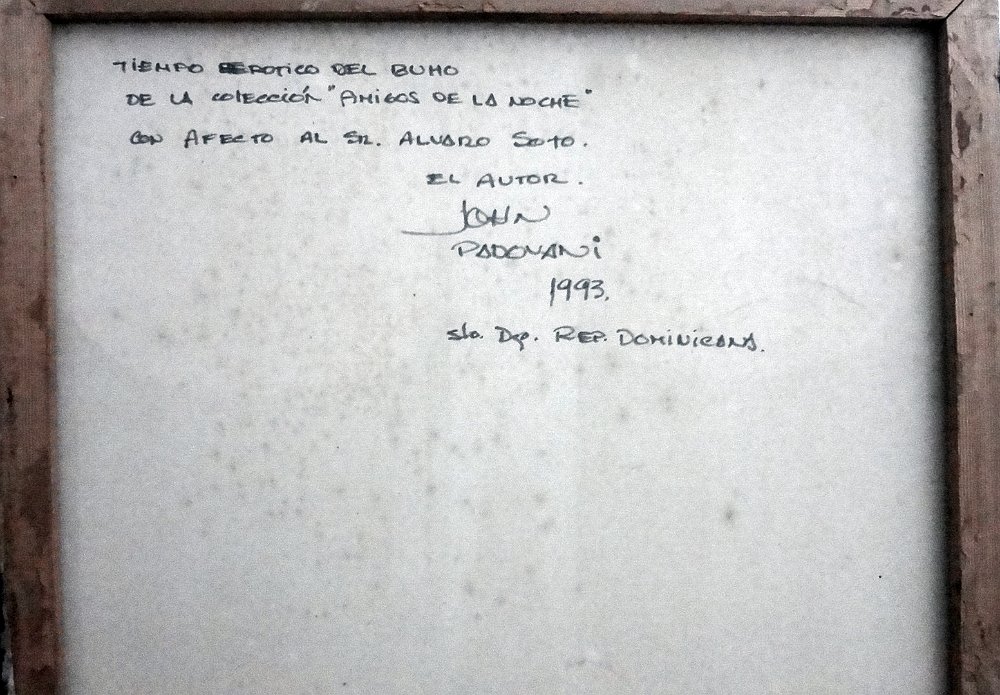 TIEMPO EROTICO DEL BUHO
DE LA COLECCIÓN "AMIGOS DE LA NOCHE"
CON AFECTO AL SR. ALVARO SOTO.
EL AUTOR.
JOHN
PADOVANI
1993.
Sto. Dgo. REP. DOMINICANA.